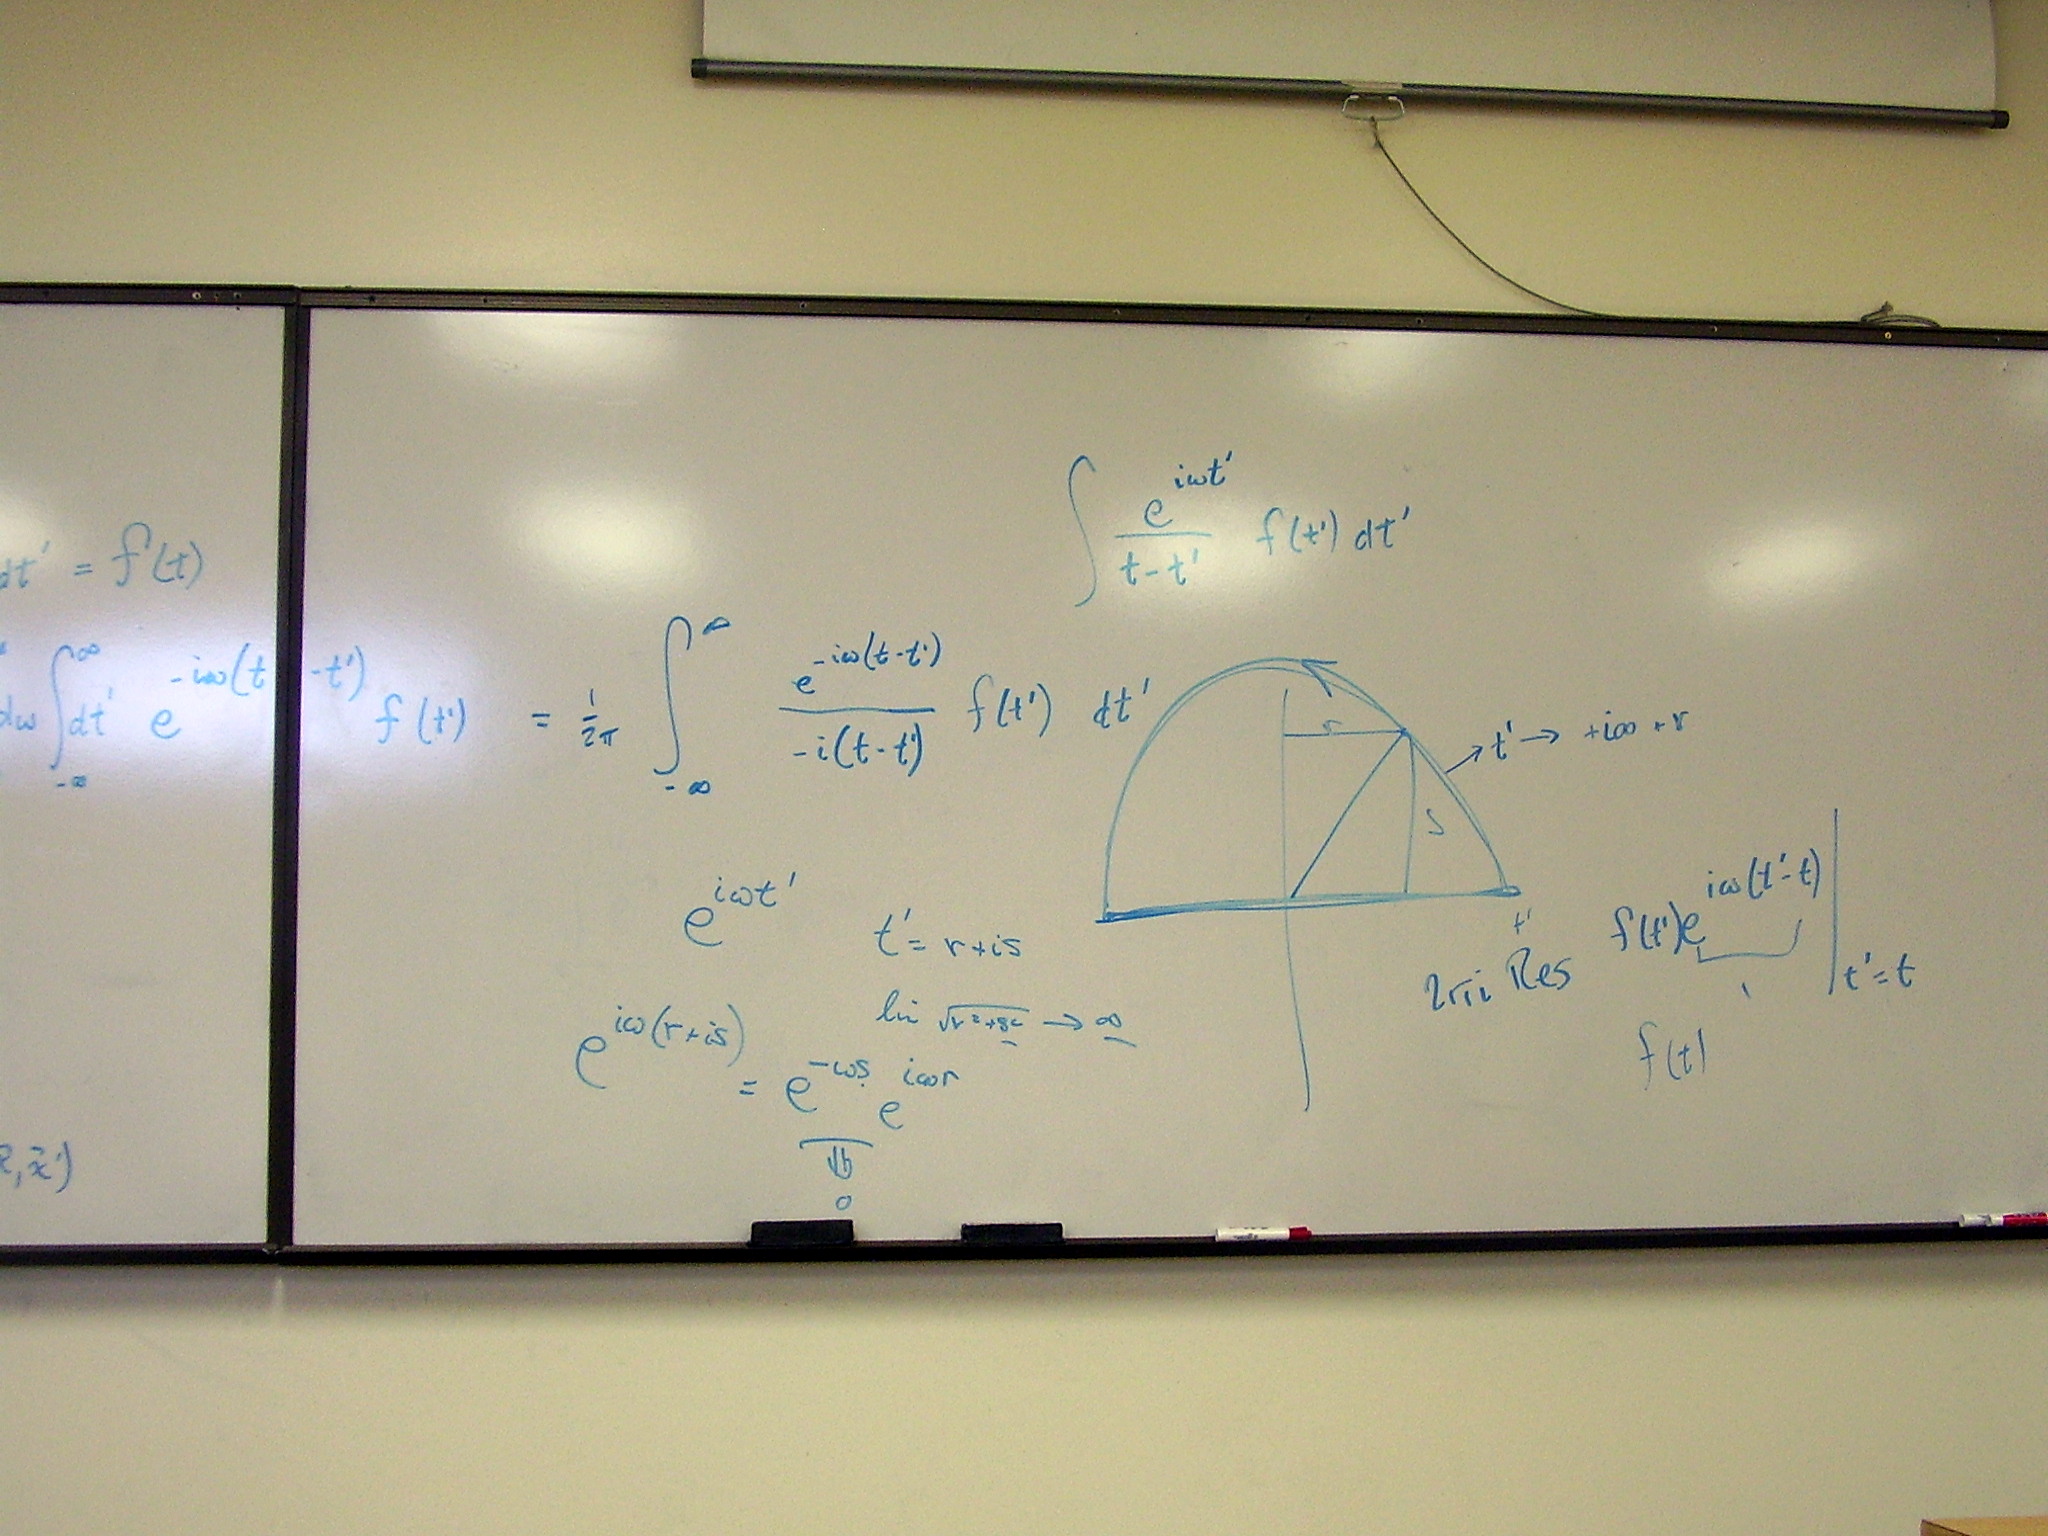 dt' = f(t)
dω ∫_{-∞}^{∞} dt' e^{-iω(t-t')} f(t') = 1/2π ∫_{-∞}^{∞} e^{-iω(t-t')} / -i(t-t') f(t') dt'
x, x̃')
∫ e^{iωt'} / t-t' f(t') dt'
r
s
t' → +i∞ + r
t'
e^{iωt'}
t' = r+is
lim √r²+s² → ∞
e^{iω(r+is)} = e^{-ωs} e^{iωr}
⇓
0
2πi Res f(t')e^{iω(t'-t)} |_{t'=t}
f(t)